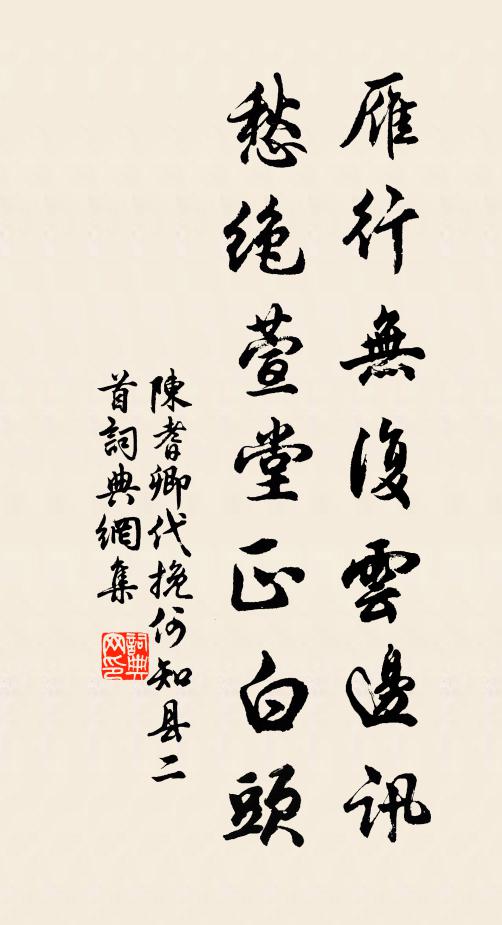 雁行無復雲邊訊
愁絶萱堂正白頭
陳耆卿代挽何知县二
首詞典網集
詞典網印